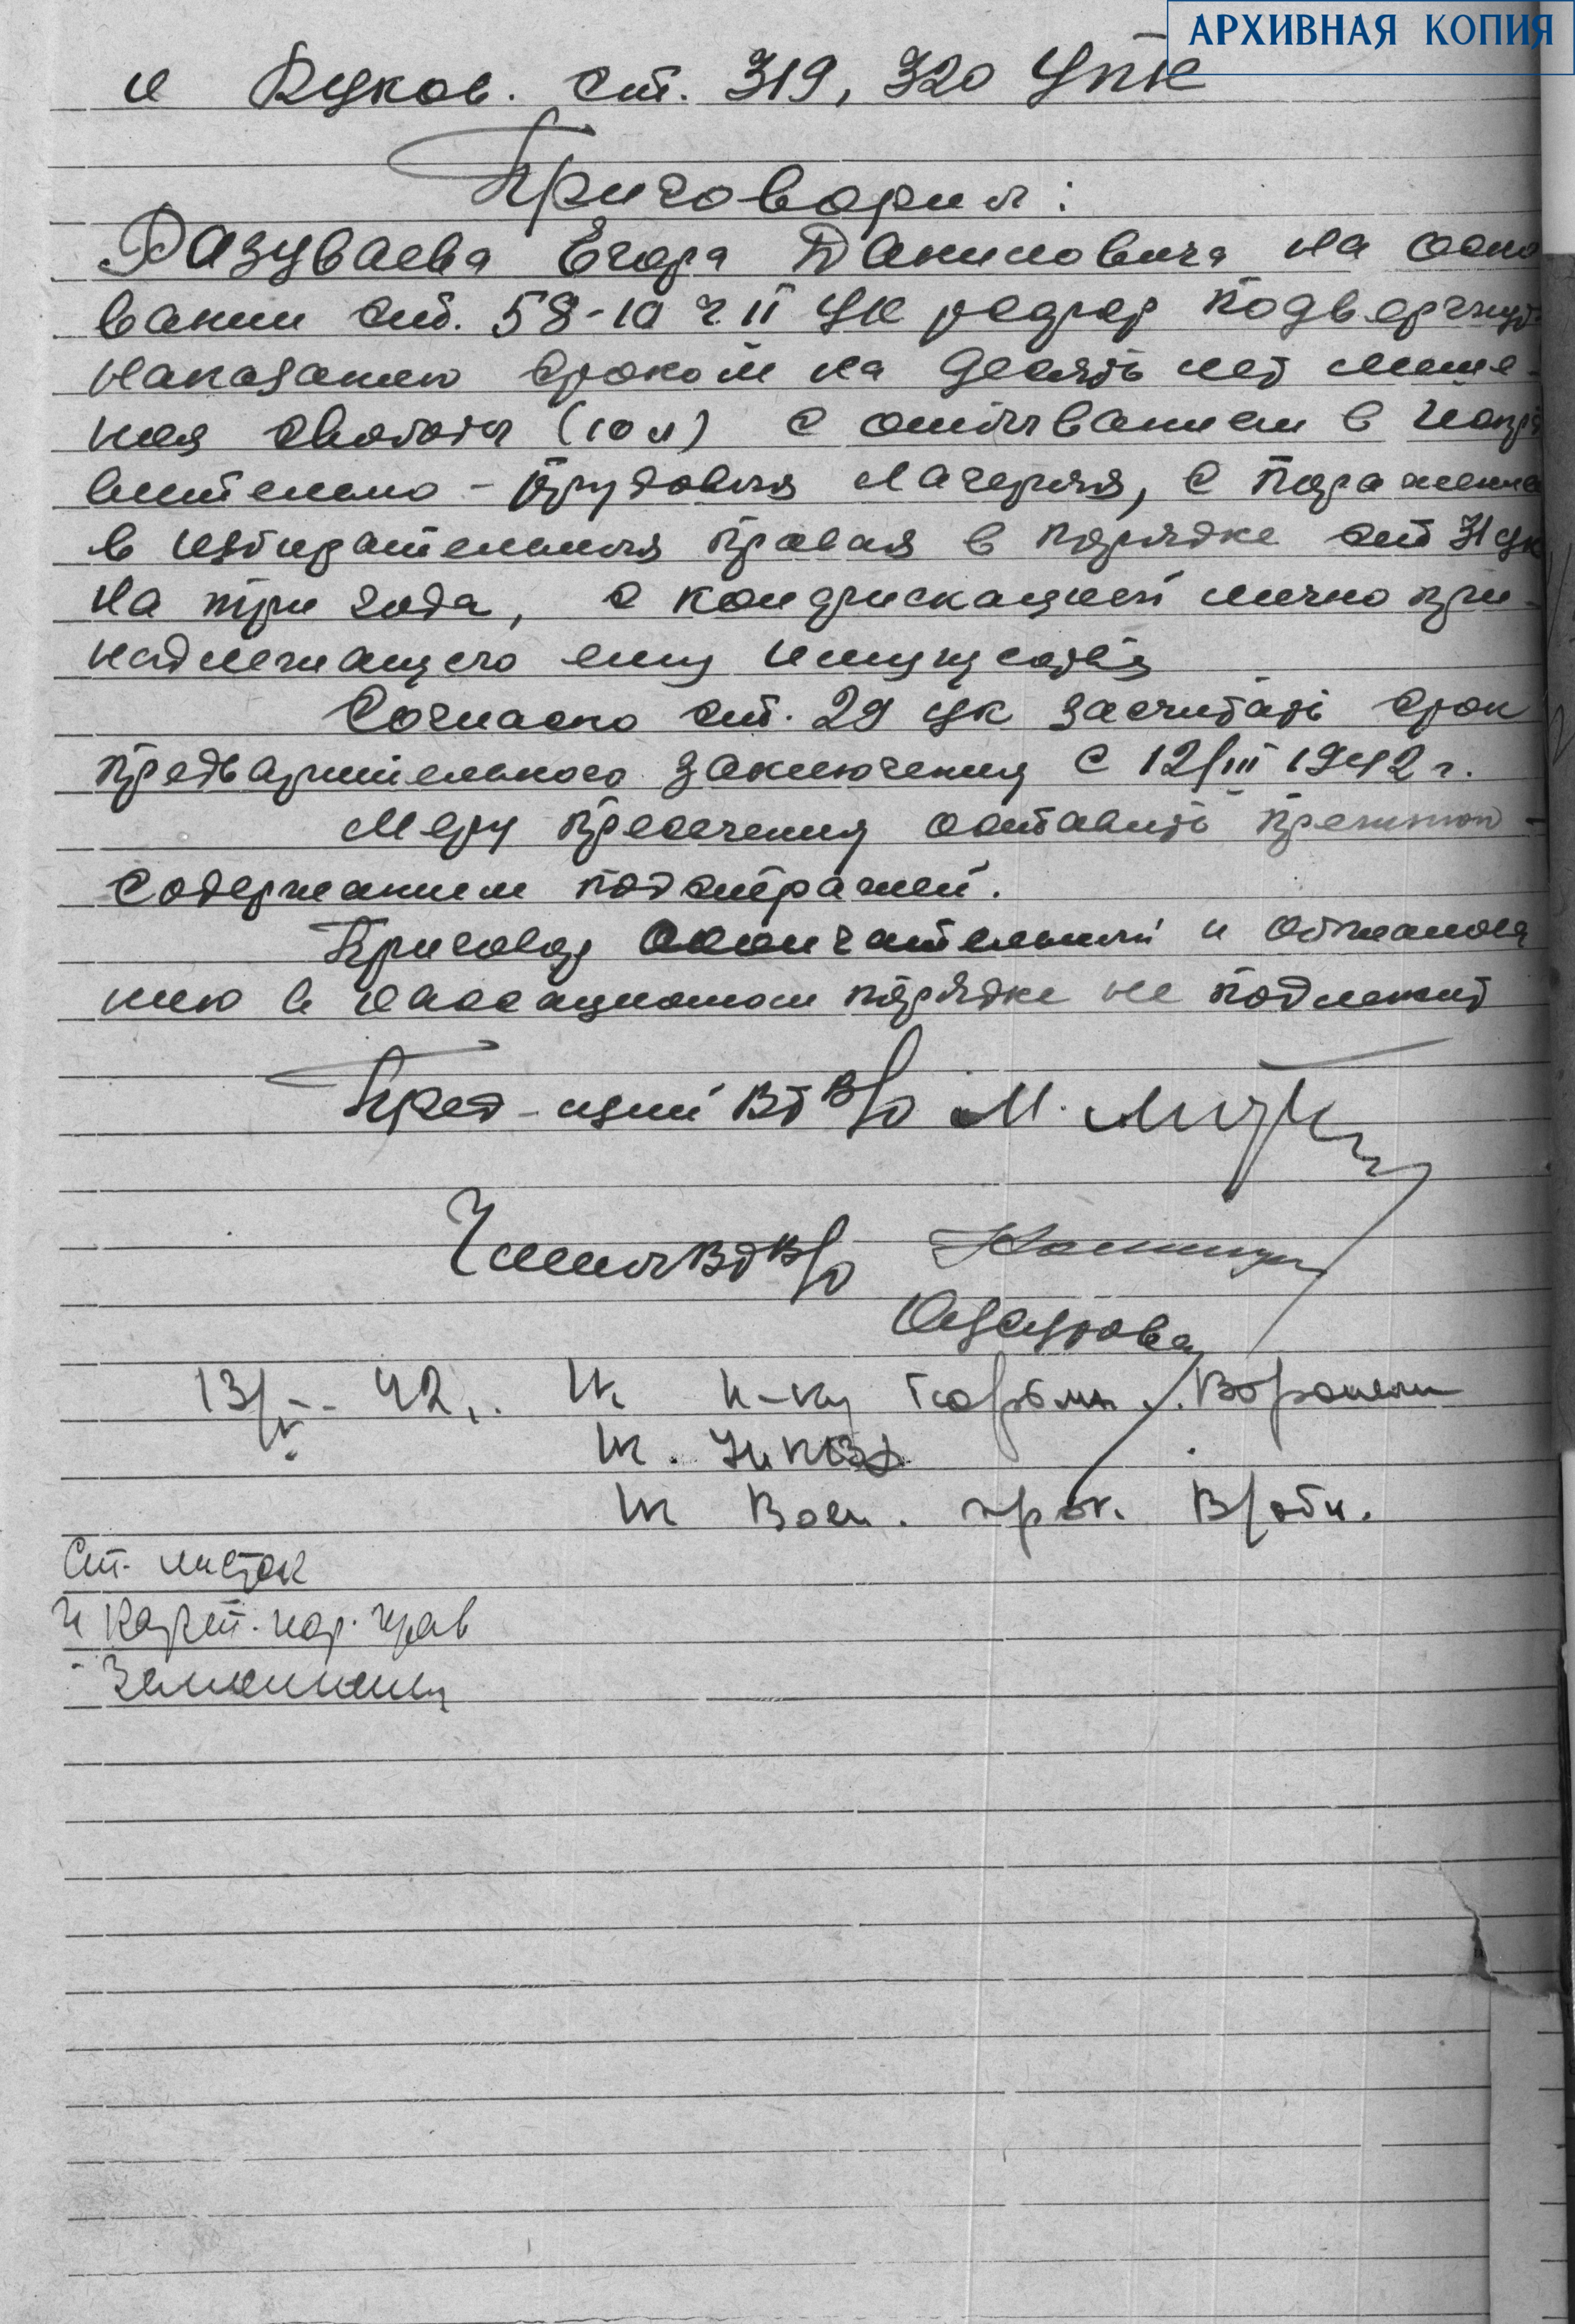 АРХИВНАЯ КОПИЯ
и Руков. ст. 319, 320 УПК
Приговорил:
Разуваева Егора Даниловича на осно
вании ст. 58-10 ч. II УК РСФСР подвергнуть
наказанию сроком на десять лет лише-
ния свободы (10 л) с отбыванием в испра
вительно-трудовых лагерях, с поражением
в избирательных правах в порядке ст 31 УК
на три года, с конфискацией лично при-
надлежащего ему имущества
Согласно ст. 29 УК засчитать срок
предварительного заключения с 12/III 1942 г.
Меру пресечения оставить прежнюю -
содержанием под стражей.
Приговор окончательный и обжалова
нию в кассационном порядке не подлежит
Пред-щий ВТ В/О М.
Члены ВТ В/О
13/V- 42 г. К н-ку тюрьмы г. Воронеж
К. УНКВД
К Воен. прок. В/обл.
Ст. листок
и карт.